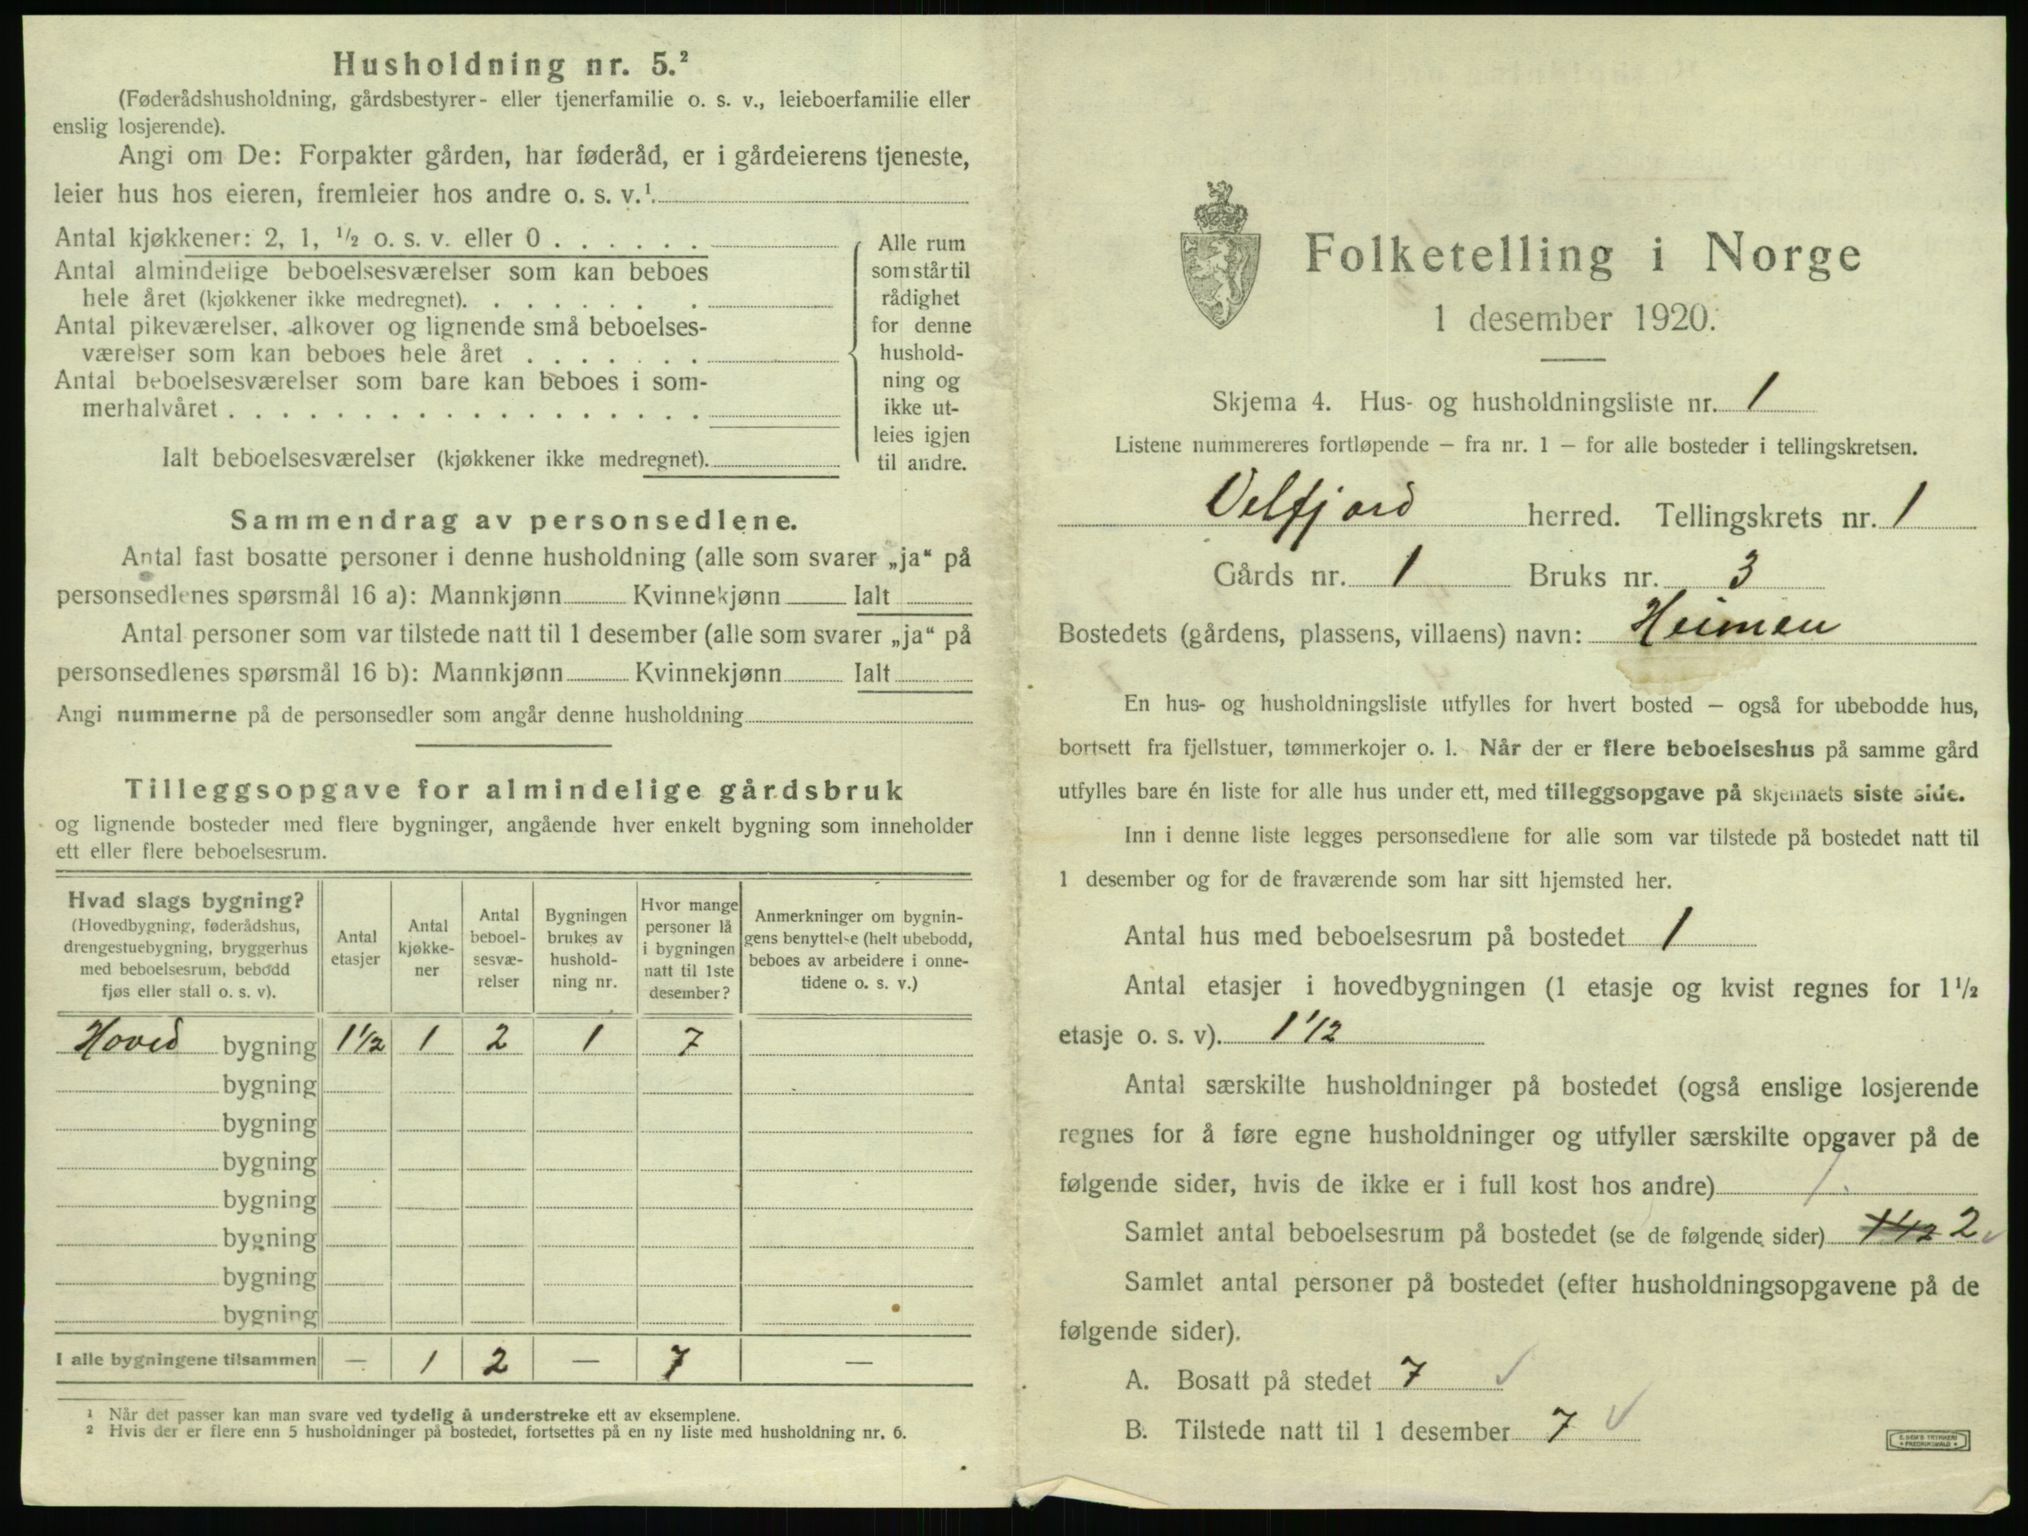 Husholdning nr. 5.²
(Føderådshusholdning, gårdsbestyrer- eller tjenerfamilie o. s. v., leieboerfamilie eller
enslig losjerende).
Angi om De: Forpakter gården, har føderåd, er i gårdeierens tjeneste,
leier hus hos eieren, fremleier hos andre o. s. v.¹.
Antal kjøkkener: 2, 1, ½ o. s. v. eller 0 . . . . . .
Antal almindelige beboelsesværelser som kan beboes
hele året (kjøkkener ikke medregnet). . . . . . . .
Antal pikeværelser, alkover og lignende små beboelses-
værelser som kan beboes hele året . . . . . . .
Antal beboelsesværelser som bare kan beboes i som-
merhalvåret . . . . . . . . . . . . . . . . . .
Ialt beboelsesværelser (kjøkkener ikke medregnet).
Alle rum
som står til
rådighet
for denne
hushold-
ning og
ikke ut-
leies igjen
til andre.
Sammendrag av personsedlene.
Antal fast bosatte personer i denne husholdning (alle som svarer „ja“ på
personsedlenes spørsmål 16 a): Mannkjønn Kvinnekjønn Ialt
Antal personer som var tilstede natt til 1 desember (alle som svarer „ja“ på
personsedlenes spørsmål 16 b): Mannkjønn Kvinnekjønn Ialt
Angi nummerne på de personsedler som angår denne husholdning
Tilleggsopgave for almindelige gårdsbruk
og lignende bosteder med flere bygninger, angående hver enkelt bygning som inneholder
ett eller flere beboelsesrum.
Hvad slags bygning?
(Hovedbygning, føderådshus,
drengestuebygning, bryggerhus
med beboelsesrum, bebodd
fjøs eller stall o. s. v).
Antal
etasjer
Antal
kjøkke-
ner
Antal
beboel-
sesvæ-
relser
Bygningen
brukes av
hushold-
ning nr.
Hvor mange
personer lå
i bygningen
natt til 1ste
desember?
Anmerkninger om bygnin-
gens benyttelse (helt ubebodd,
beboes av arbeidere i onne-
tidene o. s. v.)
Hoved bygning 1½ 1 2 1 7
bygning
bygning
bygning
bygning
bygning
bygning
bygning
I alle bygningene tilsammen — 1 2 — 7 —
¹ Når det passer kan man svare ved tydelig å understreke ett av eksemplene.
² Hvis der er flere enn 5 husholdninger på bostedet, fortsettes på en ny liste med husholdning nr. 6.
Folketelling i Norge
1 desember 1920.
Skjema 4. Hus- og husholdningsliste nr. 1
Listene nummereres fortløpende — fra nr. 1 — for alle bosteder i tellingskretsen.
Velfjord herred. Tellingskrets nr. 1
Gårds nr. 1 Bruks nr. 3
Bostedets (gårdens, plassens, villaens) navn: Heimen
En hus- og husholdningsliste utfylles for hvert bosted — også for ubebodde hus,
bortsett fra fjellstuer, tømmerkojer o. l. Når der er flere beboelseshus på samme gård
utfylles bare én liste for alle hus under ett, med tilleggsopgave på skjemaets siste side.
Inn i denne liste legges personsedlene for alle som var tilstede på bostedet natt til
1 desember og for de fraværende som har sitt hjemsted her.
Antal hus med beboelsesrum på bostedet 1
Antal etasjer i hovedbygningen (1 etasje og kvist regnes for 1½
etasje o. s. v). 1½
Antal særskilte husholdninger på bostedet (også enslige losjerende
regnes for å føre egne husholdninger og utfyller særskilte opgaver på de
følgende sider, hvis de ikke er i full kost hos andre) 1.
Samlet antal beboelsesrum på bostedet (se de følgende sider) 1½ 2
Samlet antal personer på bostedet (efter husholdningsopgavene på de
følgende sider).
A. Bosatt på stedet 7 ✓
B. Tilstede natt til 1 desember 7 ✓